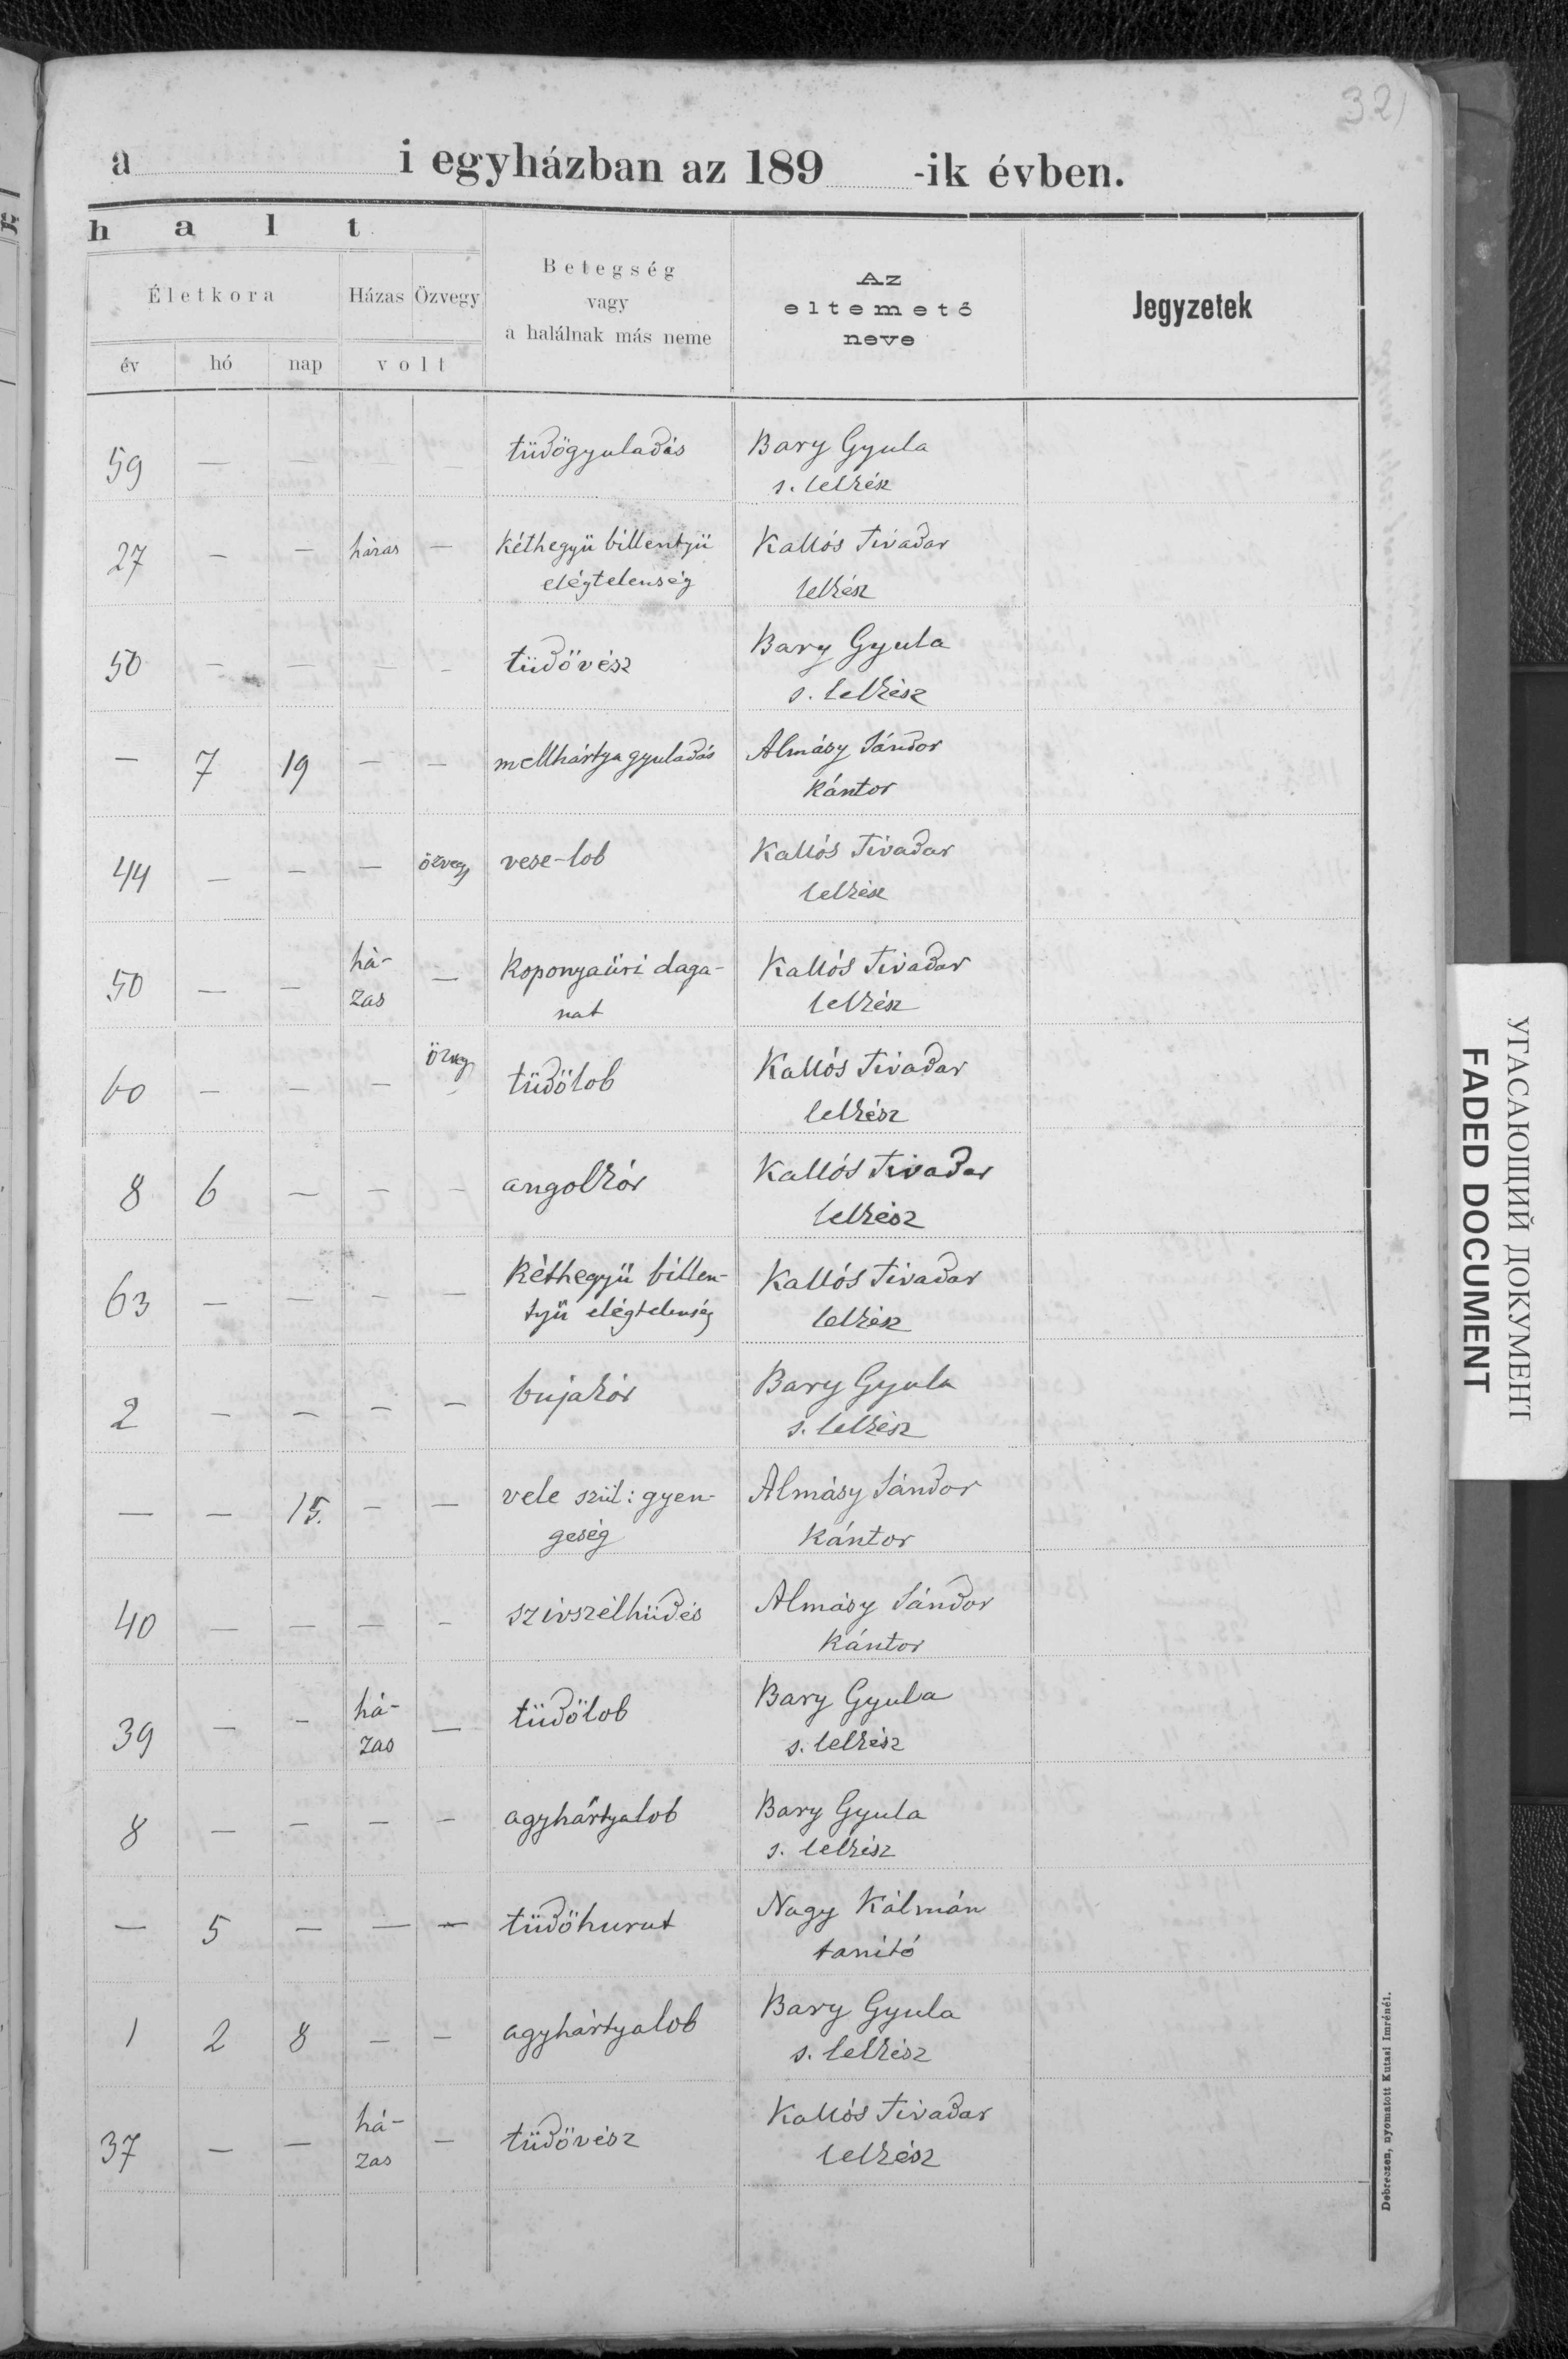 32
a i egyházban az 189 -ik évben.
h a l t
Életkora Házas Özvegy
év hó nap volt
Betegség
vagy
a halálnak más neme
Az
eltemető
neve
Jegyzetek
59 — — — — tüdőgyuladás Bary Gyula
s. lelkész
27 — — házas — Kéthegyü billentyü Kallós Tivadar
elégtelenség lelkész
50 — — — — tüdővész Bary Gyula
s. lelkész
— 7 19 — — mellhártyagyuladás Almásy Sándor
Kántor
44 — — — özvegy vese-lob Kallós Tivadar
lelkész
50 — — há- — Koponyaüri daga- Kallós Tivadar
zas nat lelkész
60 — — — özvegy tüdőlob Kallós Tivadar
lelkész
8 6 — — — angolkór Kallós Tivadar
lelkész
63 — — — — Kéthegyü billen- Kallós Tivadar
tyü elégtelenség lelkész
2 — — — — bujakór Bary Gyula
s. lelkész
— — 15. — — vele szül: gyen- Almásy Sándor
geség Kántor
40 — — — — szivszélhüdés Almásy Sándor
Kántor
39 — — há- — tüdőlob Bary Gyula
zas s. lelkész
8 — — — — agyhártyalob Bary Gyula
s. lelkész
— 5 — — — tüdőhurut Nagy Kálmán
tanító
1 2 8 — — agyhártyalob Bary Gyula
s. lelkész
37 — — há- — tüdővész Kallós Tivadar
zas lelkész
Debreczen, nyomatott Kutasi Imrénél.
УГАСАЮЩИЙ ДОКУМЕНТ
FADED DOCUMENT